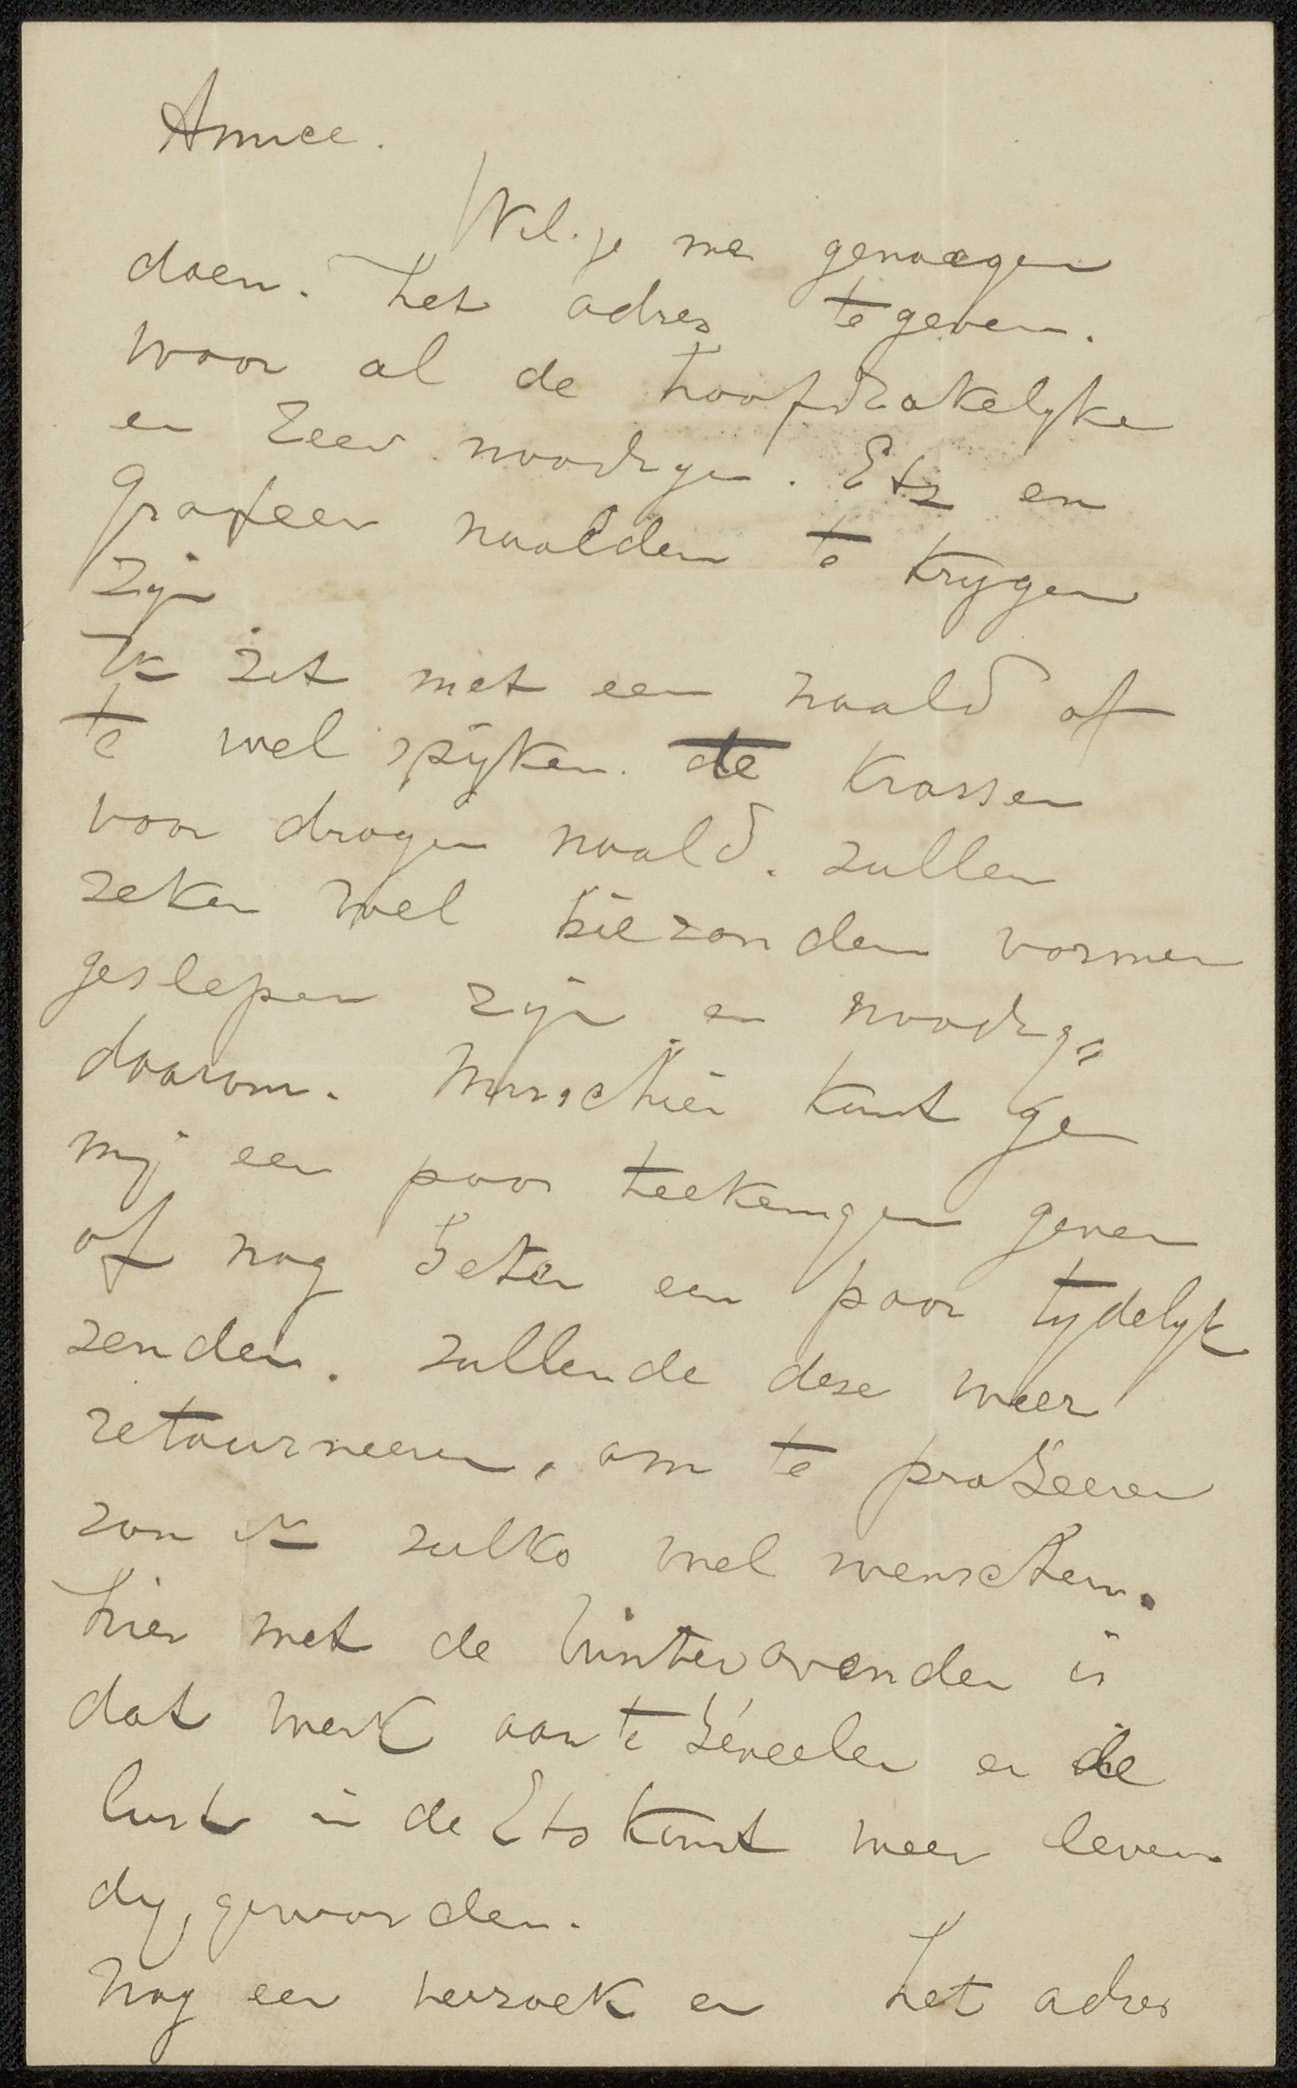 Amice.
Wil je me genoegen
doen. het adres te geven.
waar al de hoofdzakelyke
en zeer noodige. Ets en
grafeer naalden te krygen
zijn
Ik zit met een naald of
te wel spijker. de krassen
voor drogen naald. zullen
zeker wel biezonder vormen
geslepen zijn en noodig,
daarom. Misschien kunt ge
mij een paar teekeningen geven
of nog beter een paar tydelyk
zenden. zullende deze weer
retourneeren, om te probeeren
zou ik zulks wel wenschen.
hier met de winteravonden is
dat werk aan te beveelen en de
lust in de Etskunst weer leven
dig, geworden.
Nog een verzoek en het adres